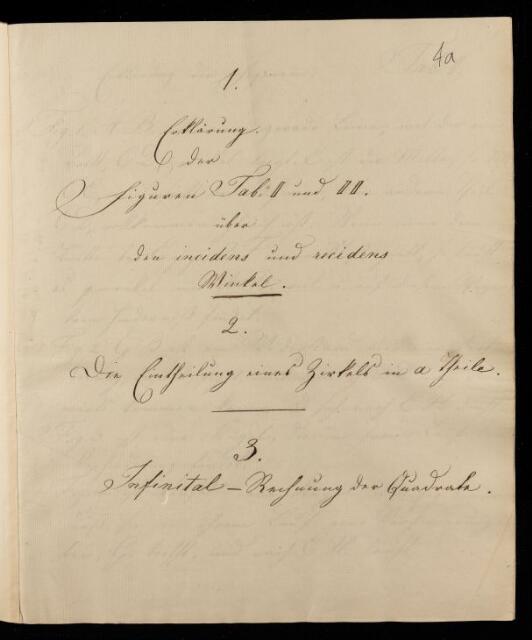 4a
1.
Erklärung
der
Figuren Tab. II und III.
über
den incidens und recidens
Winkel.
2.
Die Eintheilung eines Zirkels in a Theile.
3.
Infinital-Rechnung der Quadrate.